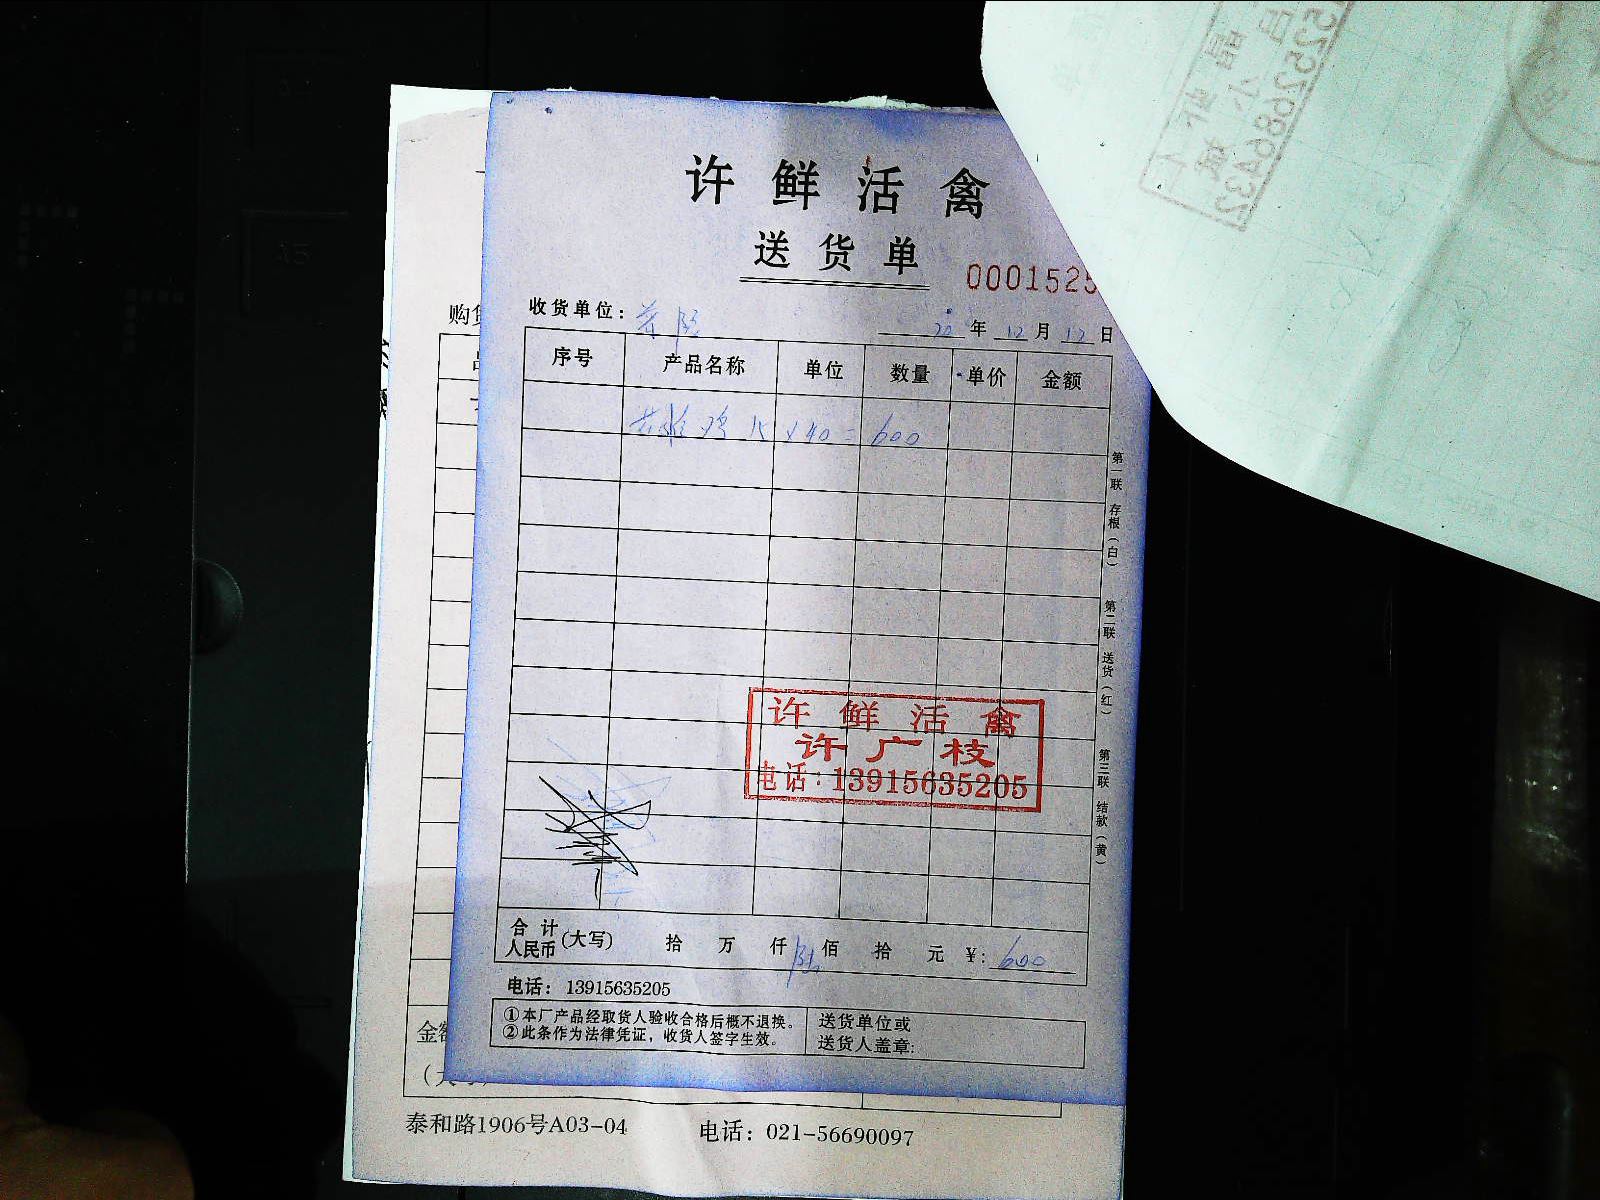 许鲜活禽
送货单
000152
收货单位：
20年12月12日
序号 产品名称 单位 数量 单价 金额
鸡 15×40=600
第一联 存根（白） 第二联 送货（红） 第三联 结款（黄）
许鲜活禽
许广枝
电话：13915635205
合计
人民币（大写） 拾 万 仟 陆佰 拾 元 ¥：600
电话：13915635205
①本厂产品经取货人验收合格后概不退换。
②此条作为法律凭证，收货人签字生效。
送货单位或
送货人盖章：
购
金
泰和路1906号A03-04 电话：021-56690097
15252686432